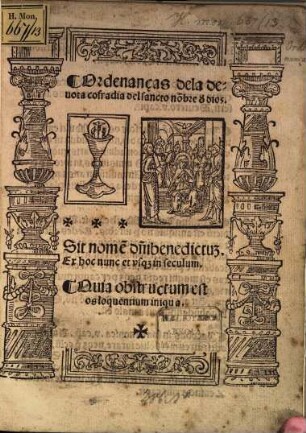 H. Mon.
667/13
667/13
¶Ordenanças dela de-
uota cofradia del sancto nõbre d̃ dios.
Sit nomẽ dñi benedictuȝ.
Ex hoc nunc et vsqȝ in seculum.
¶Quia obstructum est
os loquentium iniqua.